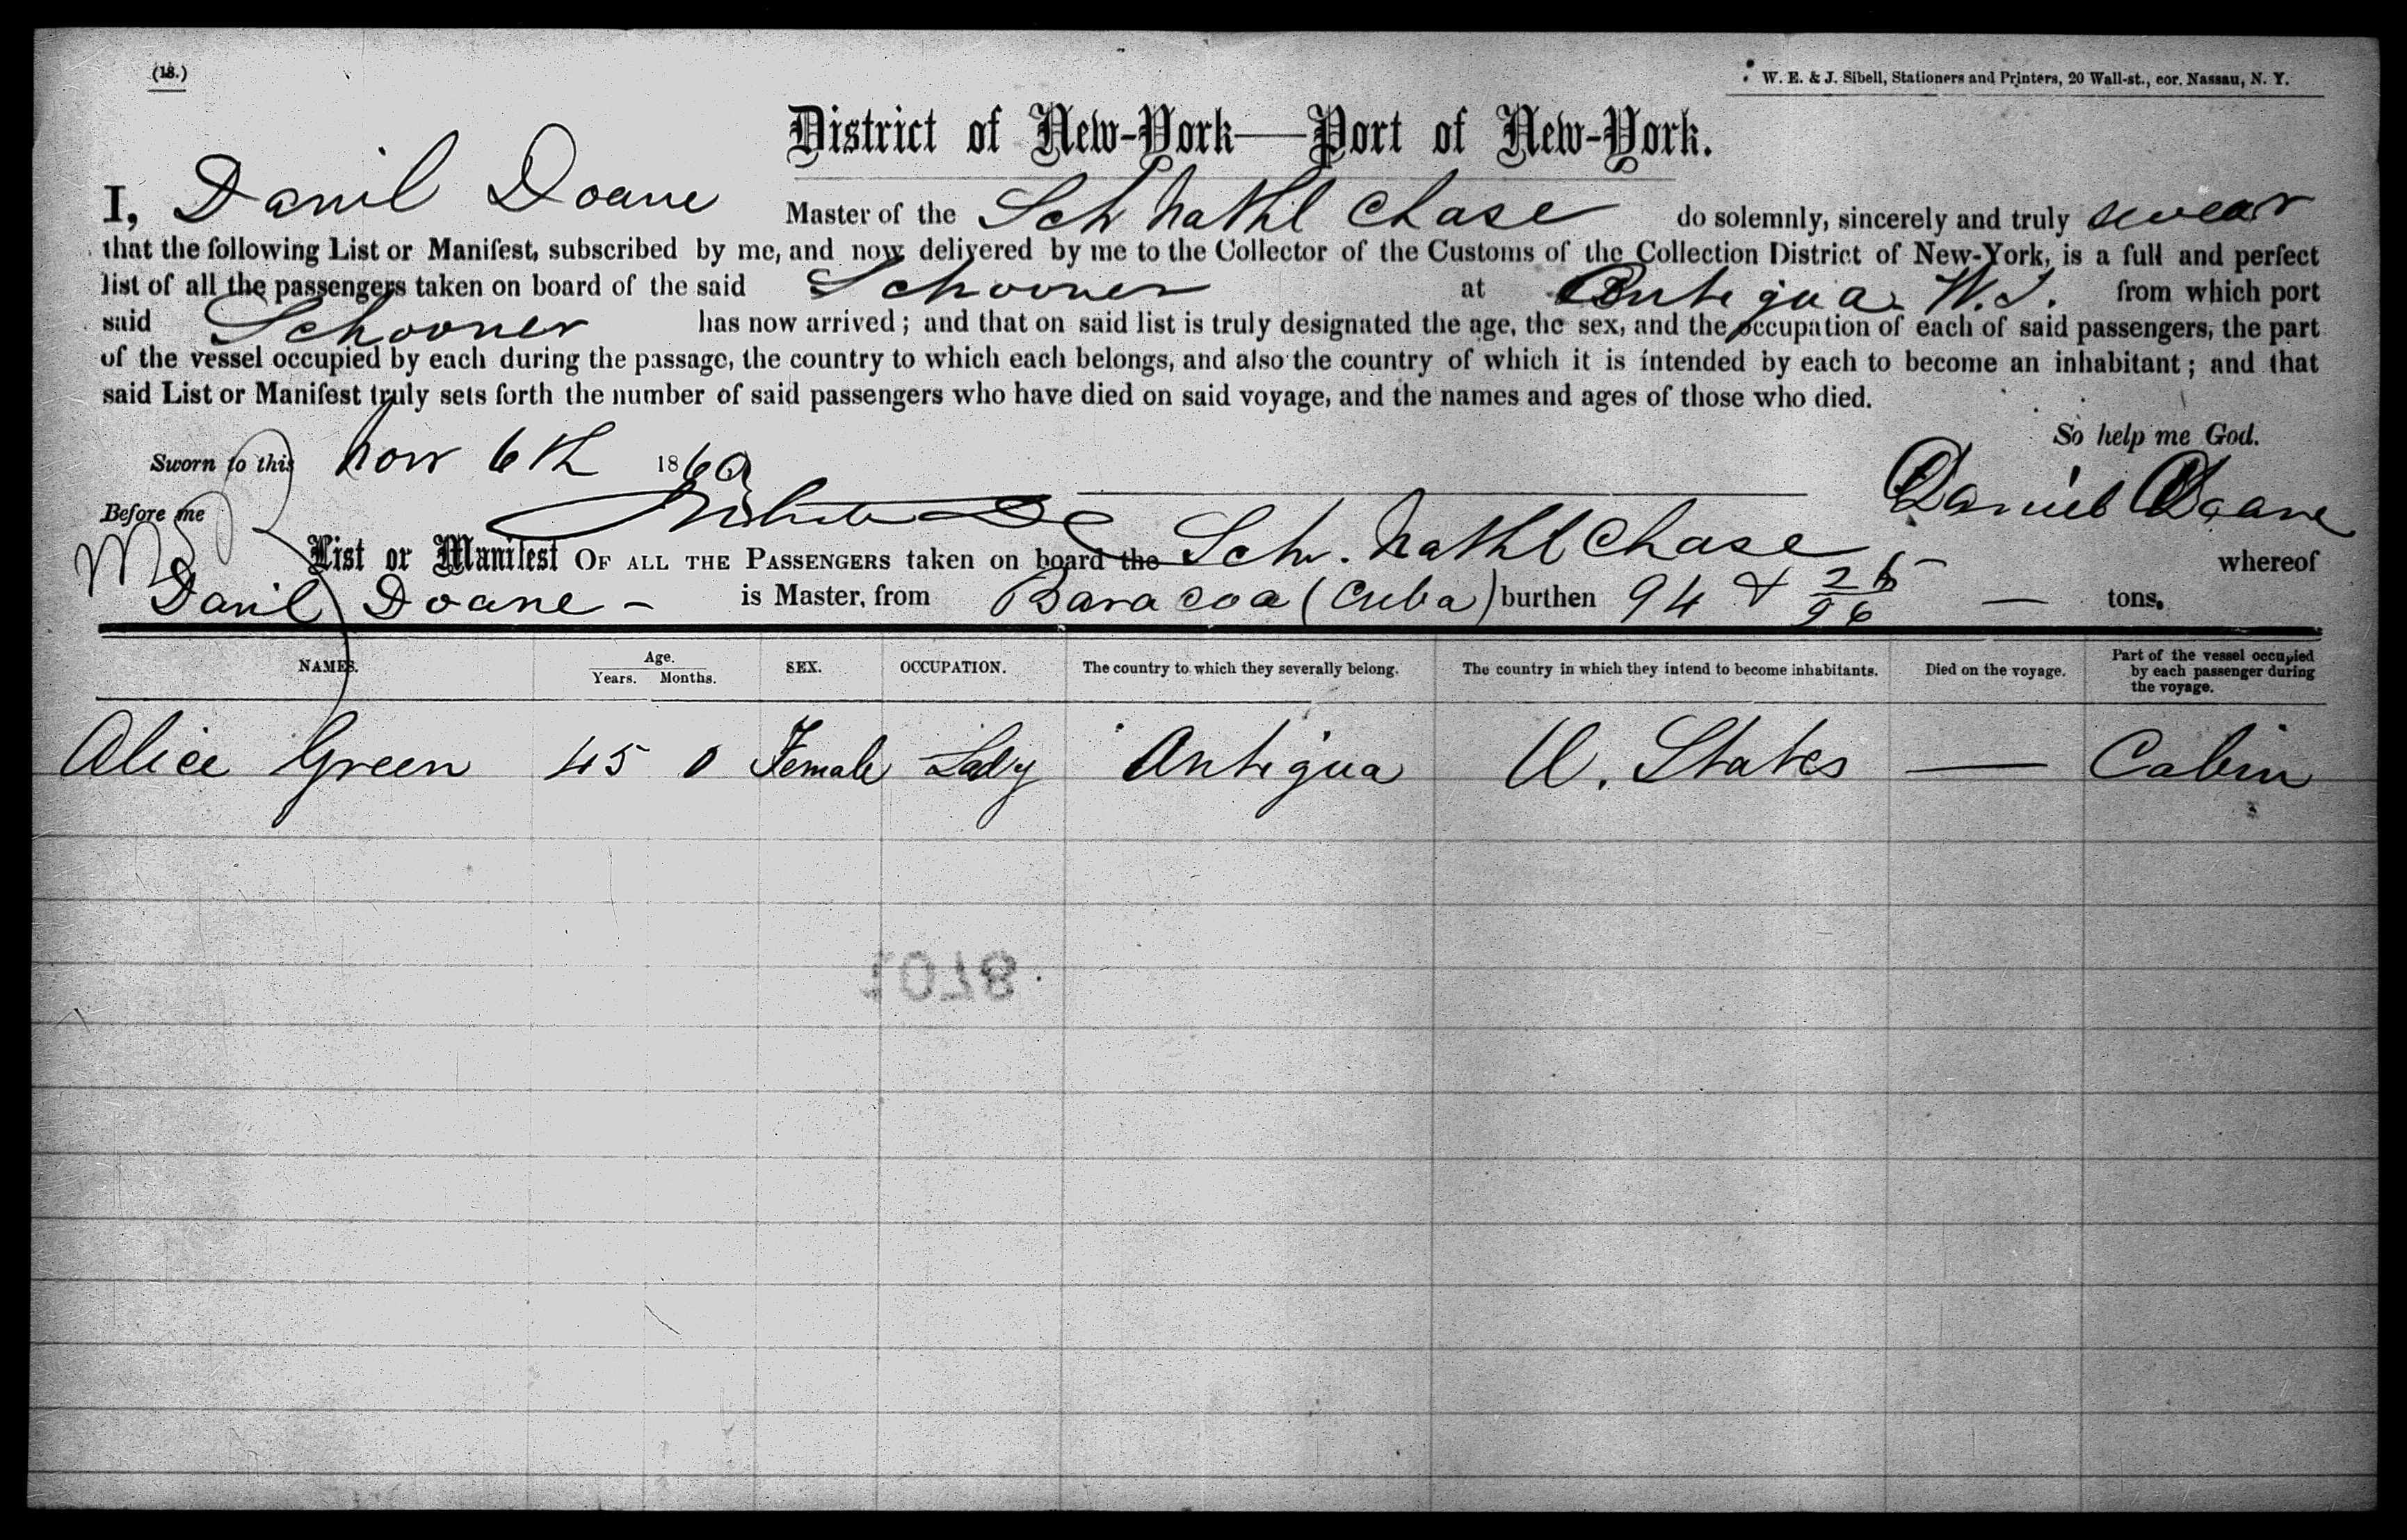 (18.)
W. E. & J. Sibell, Stationers and Printers, 20 Wall-st., cor. Nassau, N. Y.
District of New-York—Port of New-York.
I, Danil Doane Master of the Sch Nathl Chase do solemnly, sincerely and truly swear
that the following List or Manifest, subscribed by me, and now delivered by me to the Collector of the Customs of the Collection District of New-York, is a full and perfect
list of all the passengers taken on board of the said Schooner at Antigua W. I. from which port
said Schooner has now arrived; and that on said list is truly designated the age, the sex, and the occupation of each of said passengers, the part
of the vessel occupied by each during the passage, the country to which each belongs, and also the country of which it is intended by each to become an inhabitant; and that
said List or Manifest truly sets forth the number of said passengers who have died on said voyage, and the names and ages of those who died.
So help me God.
Sworn to this Nov 6th 1860
Daniel Doane
Before me
List or Manifest OF ALL THE PASSENGERS taken on board the Schr. Nathl Chase whereof
Danil Doane - is Master, from Baracoa (Cuba) burthen 94 & 26/96 — tons.
NAMES. Age. Years. Months. SEX. OCCUPATION. The country to which they severally belong. The country in which they intend to become inhabitants. Died on the voyage. Part of the vessel occupied by each passenger during the voyage.
Alice Green 45 0 Female Lady Antigua U. States — Cabin